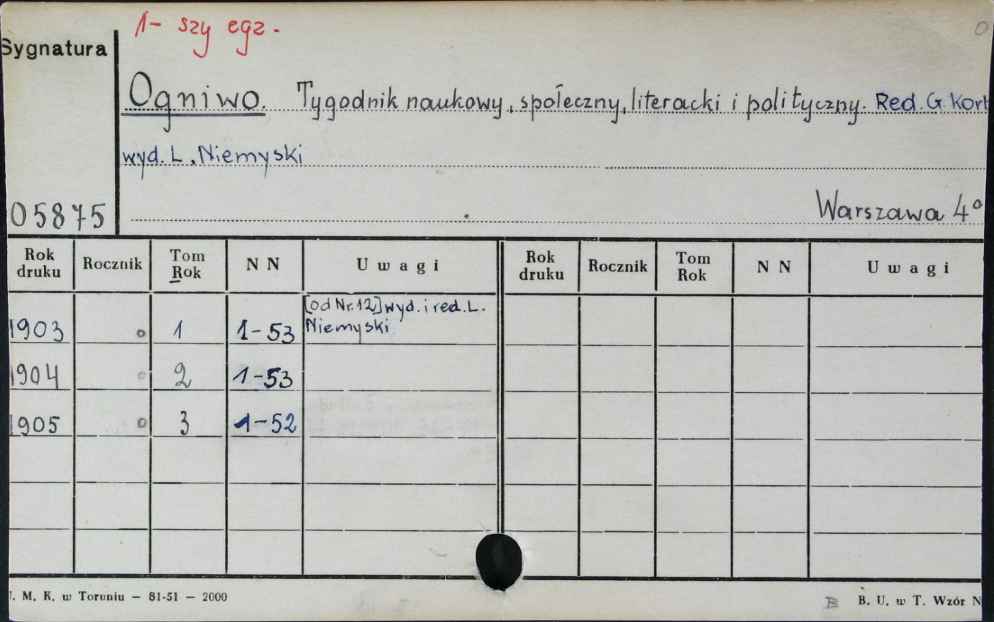 1- szy egz.
Sygnatura
Ogniwo. Tygodnik naukowy, społeczny, literacki i polityczny. Red. G. Kort
wyd. L. Niemyski
05875
Warszawa 4°
Rok druku Rocznik Tom Rok N N Uwagi Rok druku Rocznik Tom Rok N N Uwagi
[od Nr. 12] wyd. i red. L.
1903 1 1-53 Niemyski
1904 2 1-53
1905 3 1-52
M. K. w Toruniu — 81-51 — 2000
B. U. w T. Wzór N